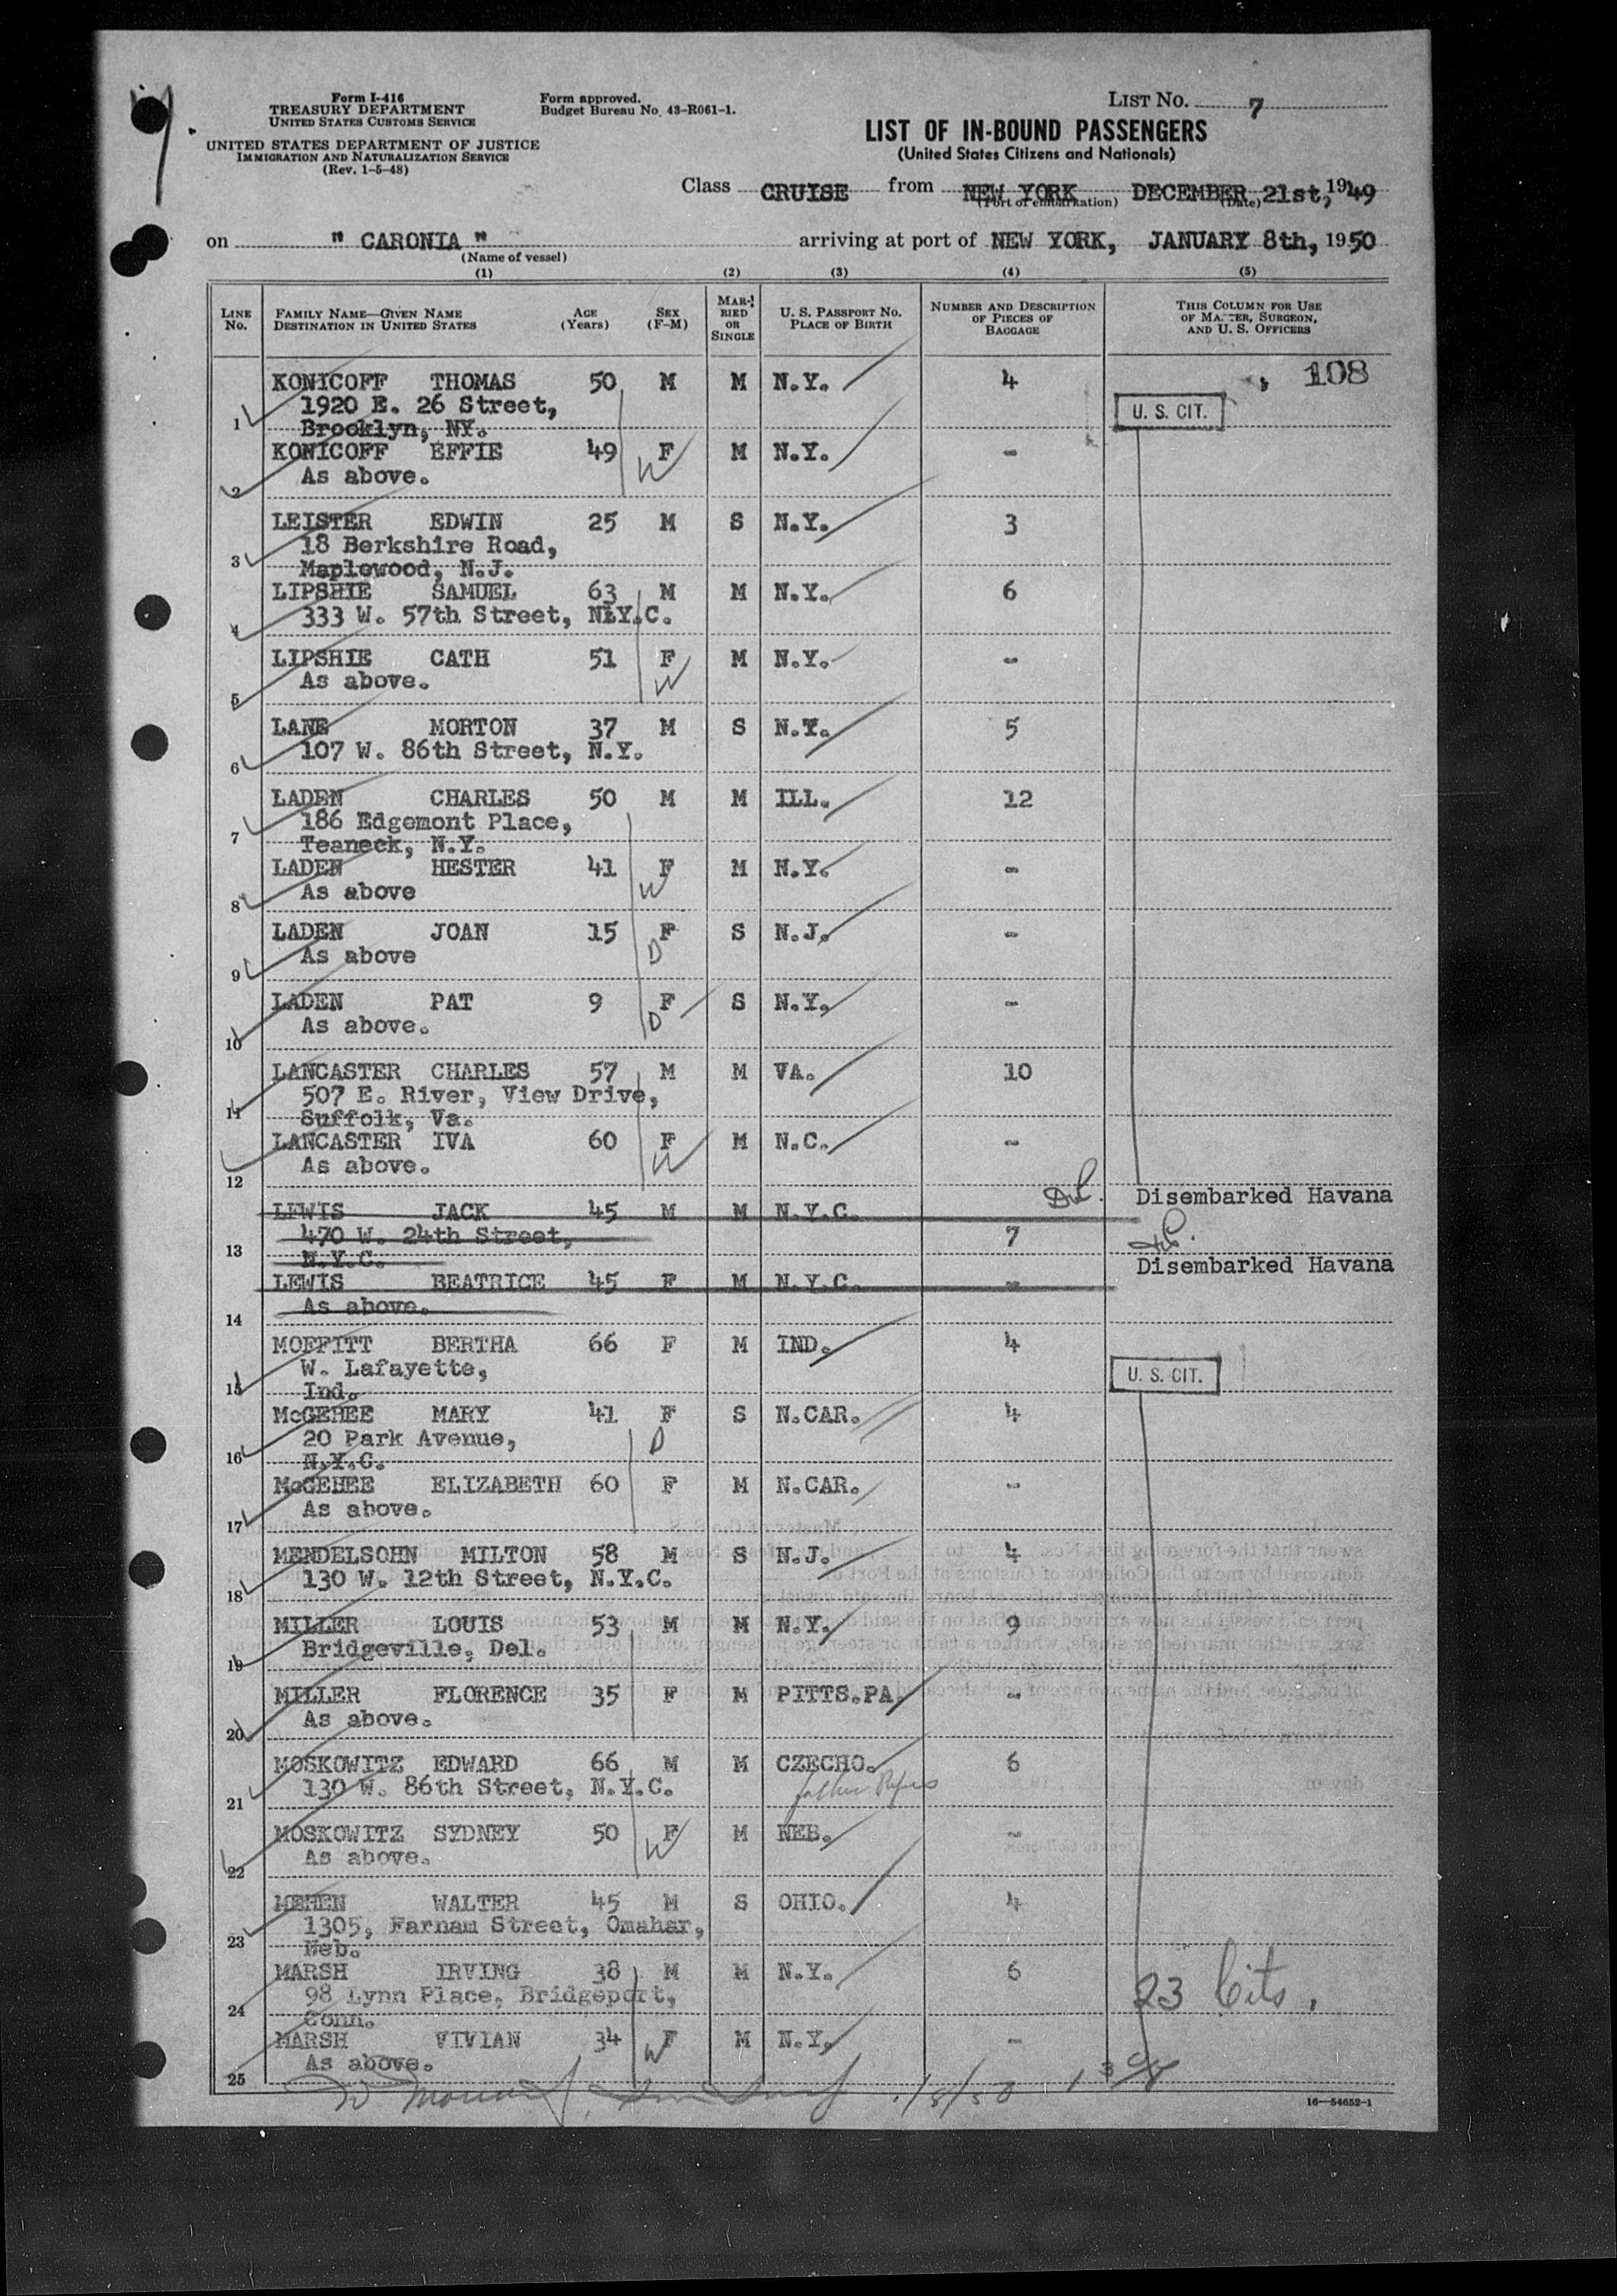 Form I-416
TREASURY DEPARTMENT
UNITED STATES CUSTOMS SERVICE
UNITED STATES DEPARTMENT OF JUSTICE
IMMIGRATION AND NATURALIZATION SERVICE
(Rev. 1-5-48)
Form approved.
Budget Bureau No. 43-R061-1.
LIST NO. 7
LIST OF IN-BOUND PASSENGERS
(United States Citizens and Nationals)
Class CRUISE from NEW YORK DECEMBER 21st, 1949
(Port of embarkation) (Date)
on " CARONIA " arriving at port of NEW YORK, JANUARY 8th, 1950
(Name of vessel)
(1) (2) (3) (4) (5)
LINE No. FAMILY NAME—GIVEN NAME DESTINATION IN UNITED STATES AGE (Years) SEX (F-M) MARRIED OR SINGLE U. S. PASSPORT NO. PLACE OF BIRTH NUMBER AND DESCRIPTION OF PIECES OF BAGGAGE THIS COLUMN FOR USE OF MASTER, SURGEON, AND U. S. OFFICERS
108
KONICOFF THOMAS 50 M M N.Y. 4
1920 E. 26 Street, U. S. CIT.
1 Brooklyn, NY.
KONICOFF EFFIE 49 F M N.Y. -
As above. W
2
LEISTER EDWIN 25 M S N.Y. 3
18 Berkshire Road,
3 Maplewood, N.J.
LIPSHIE SAMUEL 63 M M N.Y. 6
333 W. 57th Street, N.Y.C.
4
LIPSHIE CATH 51 F M N.Y. -
As above. W
5
LANE MORTON 37 M S N.Y. 5
107 W. 86th Street, N.Y.
6
LADEN CHARLES 50 M M ILL. 12
186 Edgemont Place,
7 Teaneck, N.Y.
LADEN HESTER 41 F M N.Y. -
As above W
8
LADEN JOAN 15 F S N.J. -
As above D
9
LADEN PAT 9 F S N.Y. -
As above. D
10
LANCASTER CHARLES 57 M M VA. 10
507 E. River, View Drive,
11 Suffolk, Va.
LANCASTER IVA 60 F M N.C. -
As above. W
12 Disembarked Havana
LEWIS JACK 45 M M N.Y.C.
470 W. 24th Street, 7
13 N.Y.C. Disembarked Havana
LEWIS BEATRICE 45 F M N.Y.C. -
As above.
14
MOFFITT BERTHA 66 F M IND. 4
W. Lafayette, U. S. CIT.
15 Ind.
McGEHEE MARY 41 F S N.CAR. 4
20 Park Avenue, D
16 N.Y.C.
McGEHEE ELIZABETH 60 F M N.CAR. -
As above.
17
MENDELSOHN MILTON 58 M S N.J. 4
130 W. 12th Street, N.Y.C.
18
MILLER LOUIS 53 M M N.Y. 9
Bridgeville, Del.
19
MILLER FLORENCE 35 F M PITTS.PA. -
As above.
20
MOSKOWITZ EDWARD 66 M M CZECHO. 6
130 W. 86th Street, N.Y.C. father
21
MOSKOWITZ SYDNEY 50 F M NEB. -
As above. W
22
MEHEN WALTER 45 M S OHIO. 4
1305, Farnam Street, Omahar,
23 Neb.
MARSH IRVING 38 M M N.Y. 6
98 Lynn Place, Bridgeport, 23 Cits.
24 Conn.
MARSH VIVIAN 34 F M N.Y. -
As above. W
25
1/8/50
16—54652-1